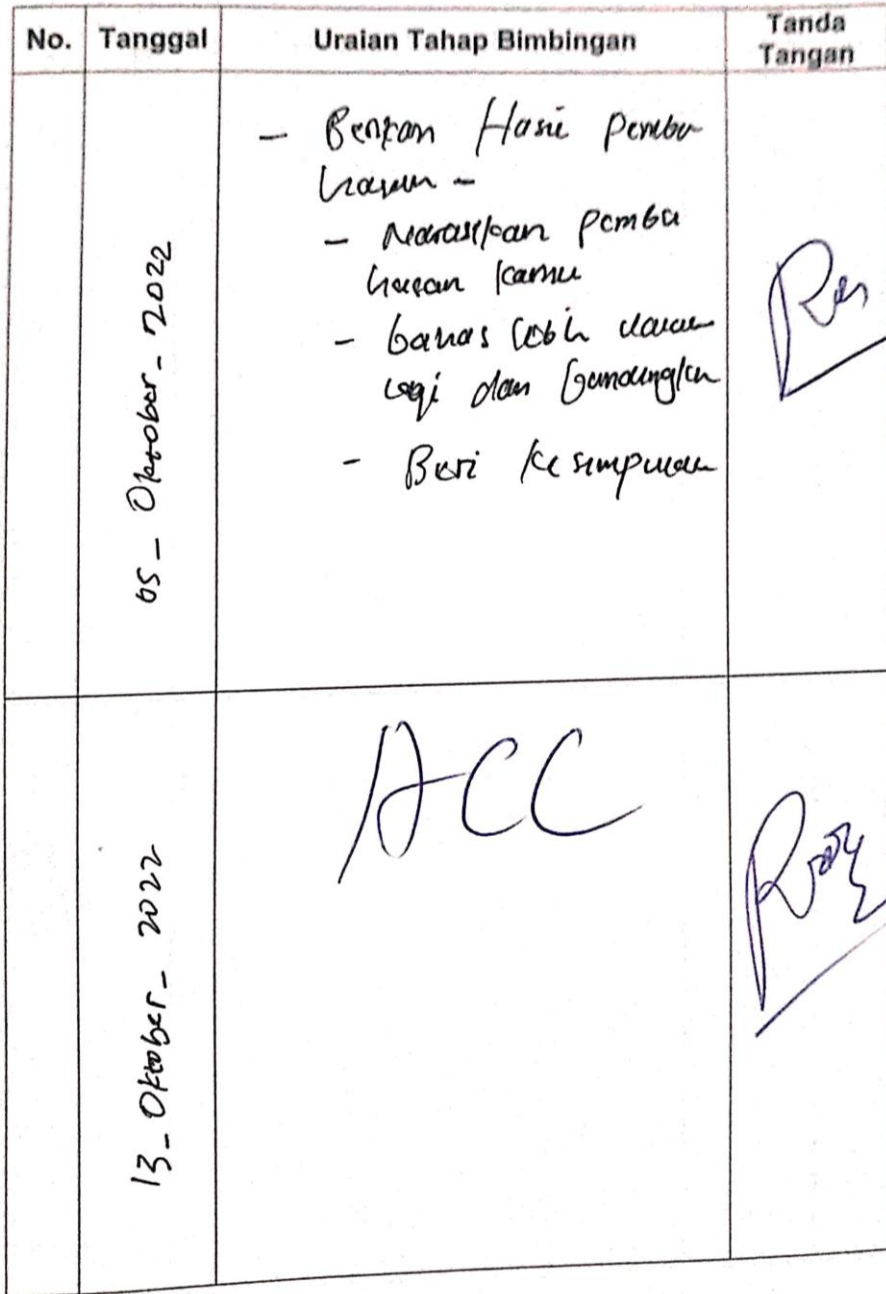 No. Tanggal Uraian Tahap Bimbingan Tanda Tangan
05_ Oktober_ 2022
- Hasil Pemba
hasan -
- Narasikan Pemba
hasan kamu
- bahas lebih dalam
lagi dan
- Beri Kesimpulan
13_ Oktober_ 2022
ACC